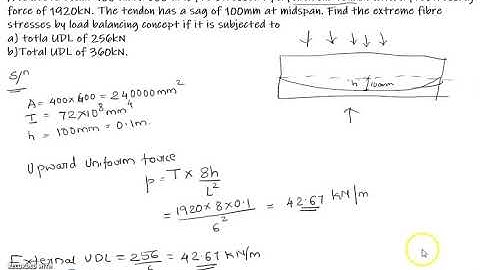 force of 1920kN. The tendon has a sag of 100mm at midspan. Find the extreme fibre
stresses by load balancing concept if it is subjected to
a) totla UDL of 256kN
b)Total UDL of 360kN.
S/n
A= 400x600 = 240000mm²
I = 72x10⁸ mm⁴
h = 100mm = 0.1m.
h 100mm
Upward Uniform force
p = T x 8h/L²
= 1920x8x0.1/6² = 42.67 kN/m
External UDL = 256/6 = 42.67 kN/m